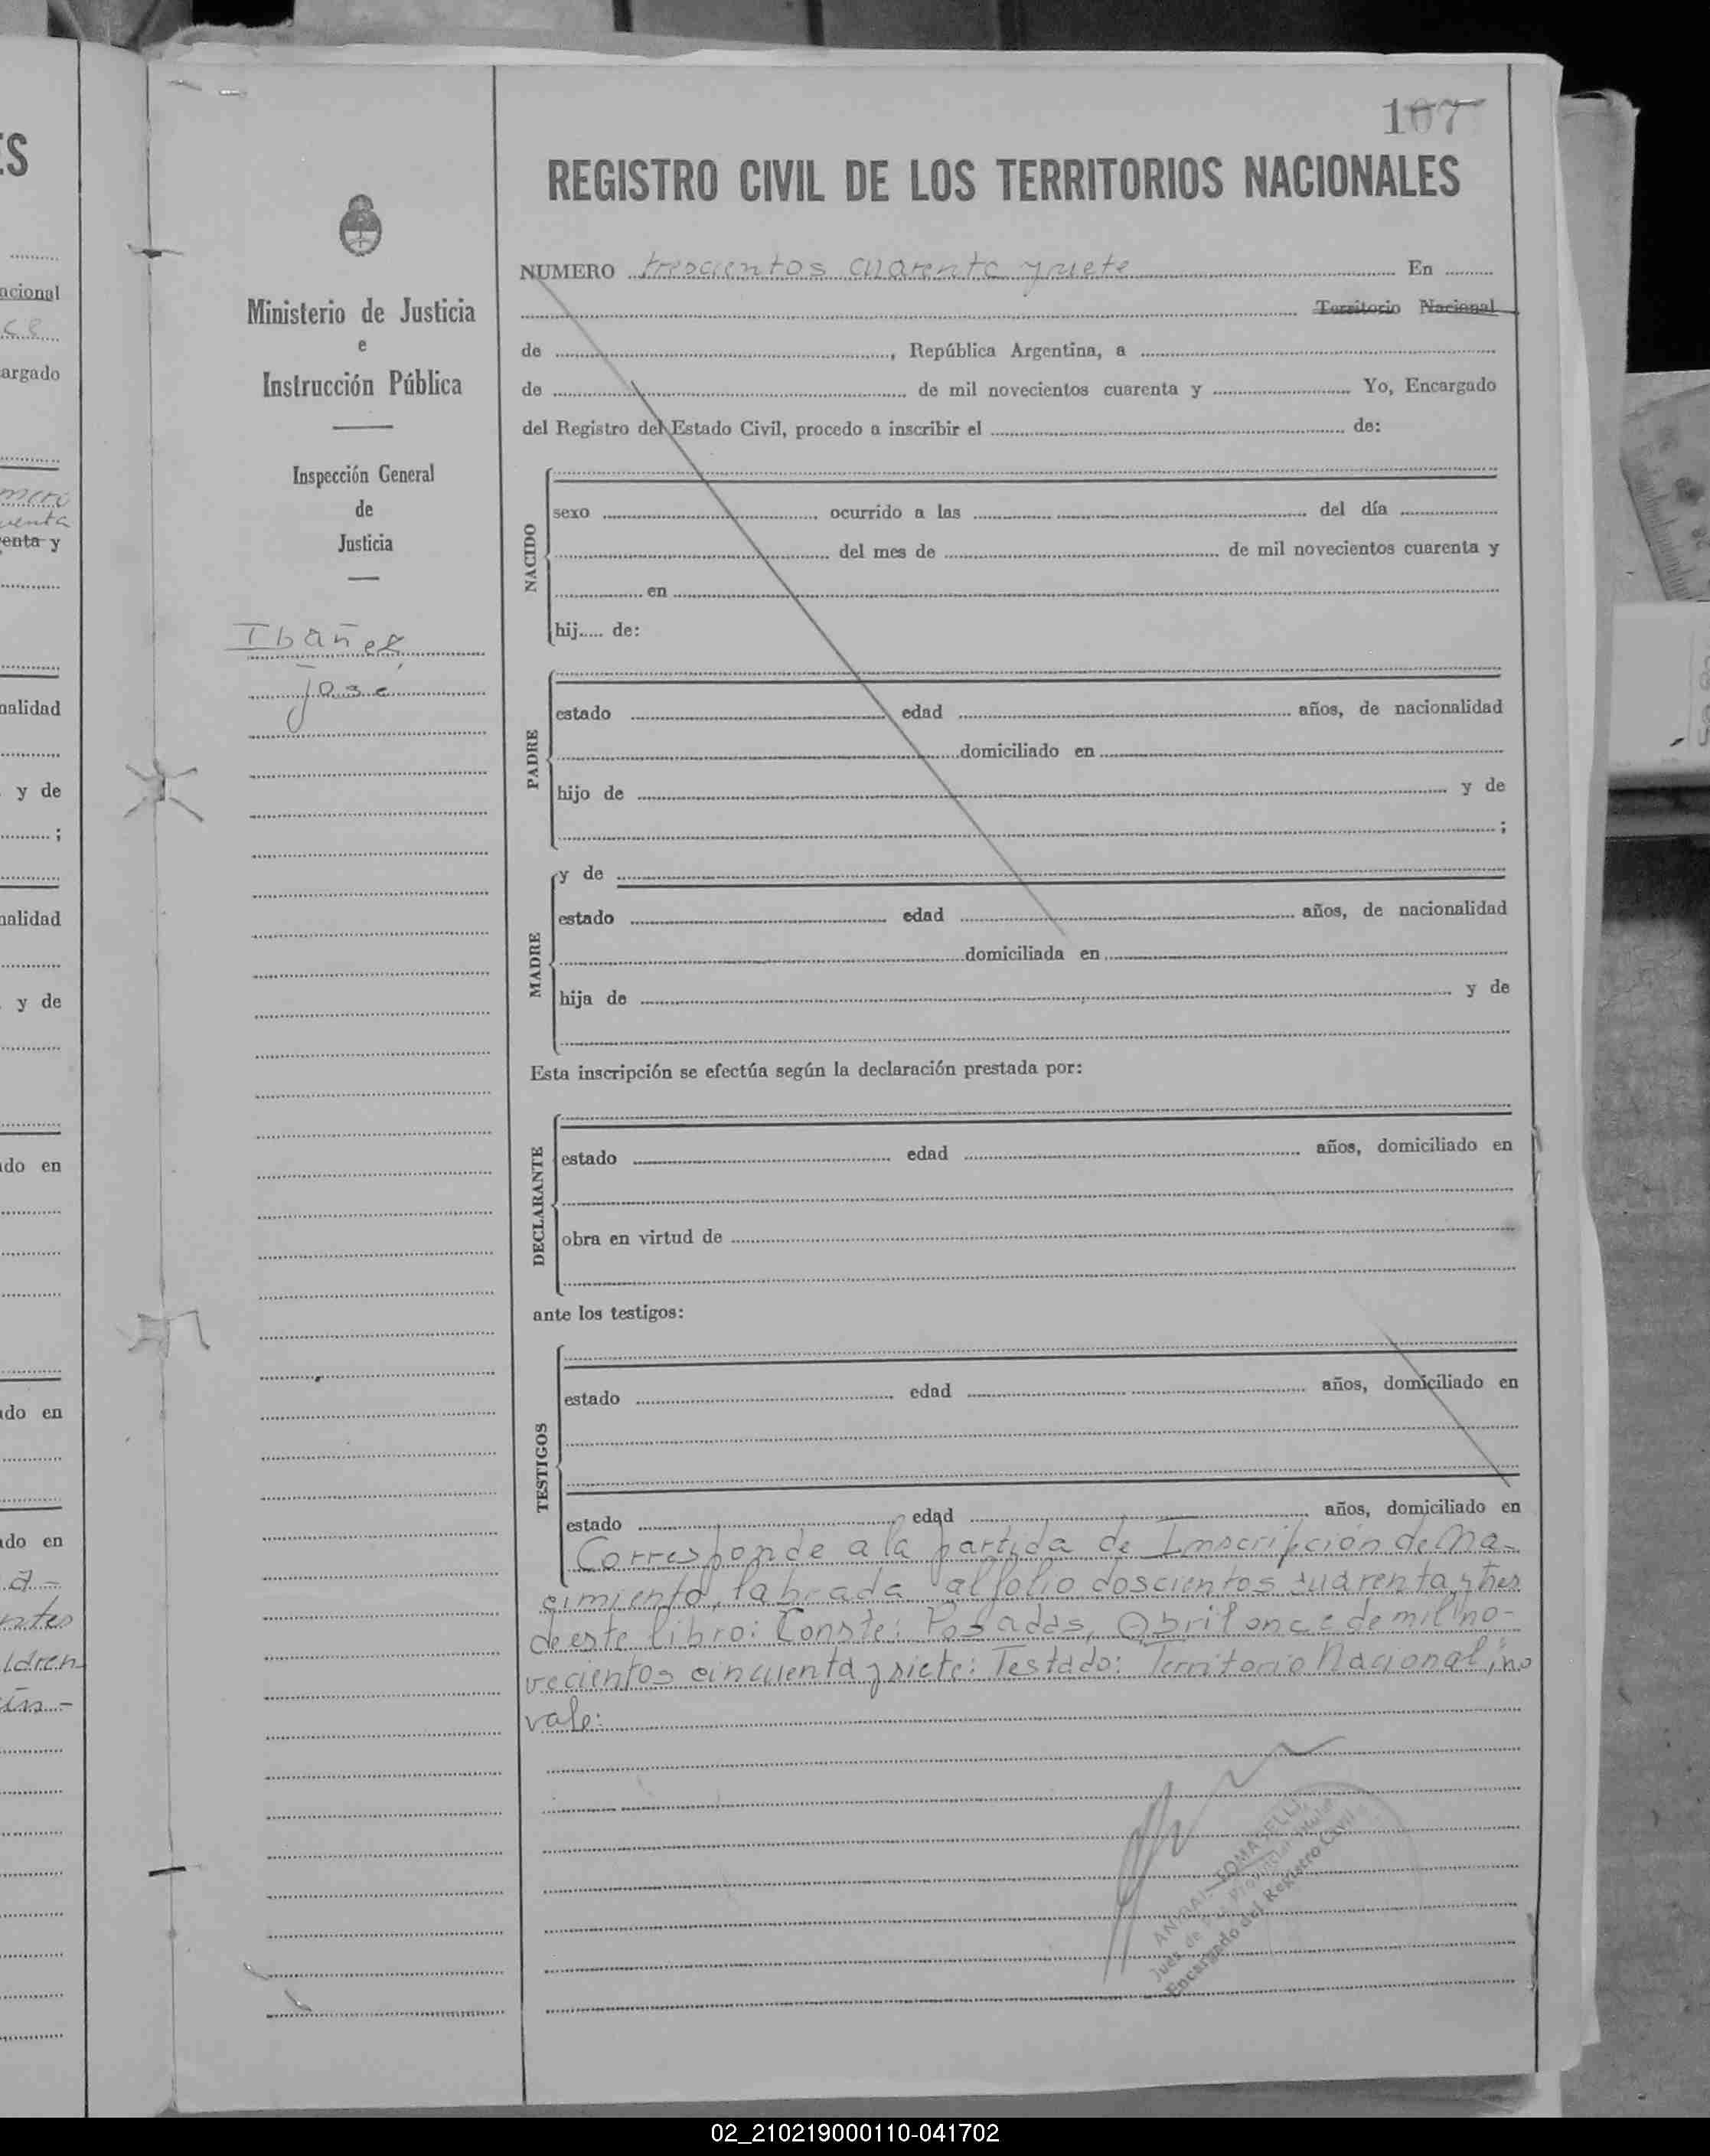 107
REGISTRO CIVIL DE LOS TERRITORIOS NACIONALES
NUMERO trescientos cuarenta y siete En
Territorio Nacional
de , República Argentina, a
de de mil novecientos cuarenta y Yo, Encargado
del Registro del Estado Civil, procedo a inscribir el de:
Ministerio de Justicia
e
Instrucción Pública
Inspección General
de
Justicia
Ibañez
José
NACIDO
sexo ocurrido a las del día
del mes de de mil novecientos cuarenta y
en
hij..... de:
PADRE
estado edad años, de nacionalidad
domiciliado en
hijo de y de
;
MADRE
y de
estado edad años, de nacionalidad
domiciliada en
hija de y de
Esta inscripción se efectúa según la declaración prestada por:
DECLARANTE
estado edad años, domiciliado en
obra en virtud de
ante los testigos:
TESTIGOS
estado edad años, domiciliado en
estado edad años, domiciliado en
Corresponde a la partida de Inscripción de Na-
cimiento, labrada al folio doscientos cuarenta y tres
de este libro: Conste: Posadas, Abril once de mil no-
vecientos cincuenta y siete: Testado: Territorio Nacional; no
vale:
TOMASELLI
Juez de Paz
Encargado del Registro Civil
ES
acional
argado
enta y
nalidad
y de
;
nalidad
y de
do en
do en
do en
02_210219000110-041702